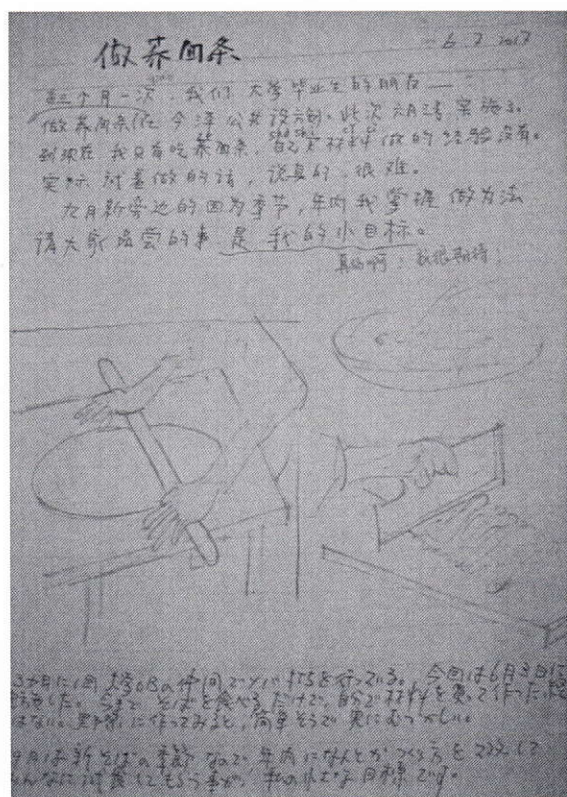 做荞面条
6 3 2017
三个月一次,我们 大学毕业生的朋友
做荞面条在 今年 公共设施。此次 六月3号 实施了。
到现在 我只有吃荞面条,自己 材料 做的 经验 没有。
实际 试着做的话,说真的,很难。
九月新荞边的因为季节,年内 我 掌握 做方法
请大家品尝的事 是 我的小目标。
真的啊!我很期待!
3ヵ月に1回 大学OBの仲間でソバ打ちを行っている。今回は6月3日に
実施した。今まで そばを食べるだけで、自分で材料を買って作った
はない。実際に作ってみると、簡単そうで実にむつかしい。
9月は新そばの季節なので 年内になんとか つくる方をマスターして
みんなに試食してもらう事が、私の小さな目標です。